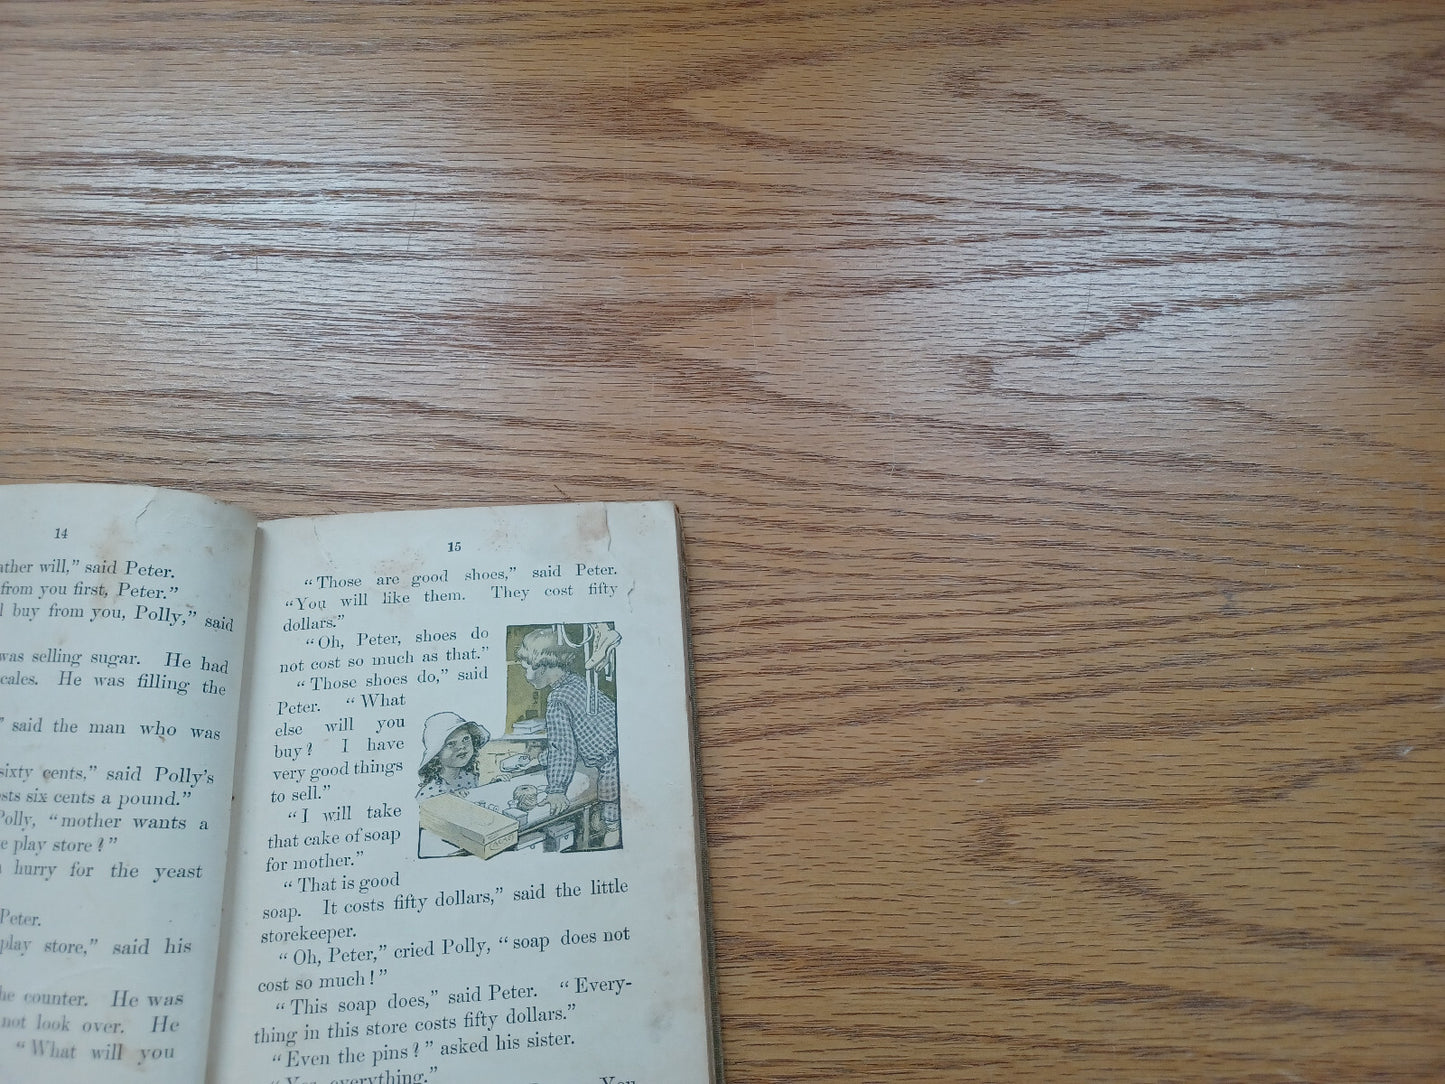 14
ather will," said Peter.
from you first, Peter."
l buy from you, Polly," said
was selling sugar. He had
cales. He was filling the
" said the man who was
sixty cents," said Polly's
sts six cents a pound."
Polly, "mother wants a
e play store?"
hurry for the yeast
Peter.
play store," said his
he counter. He was
not look over. He
"What will you
15
"Those are good shoes," said Peter.
"You will like them. They cost fifty
dollars."
"Oh, Peter, shoes do
not cost so much as that."
"Those shoes do," said
Peter. "What
else will you
buy? I have
very good things
to sell."
"I will take
that cake of soap
for mother."
"That is good
soap. It costs fifty dollars," said the little
storekeeper.
"Oh, Peter," cried Polly, "soap does not
cost so much!"
"This soap does," said Peter. "Every-
thing in this store costs fifty dollars."
"Even the pins?" asked his sister.
"Yes, everything."
You